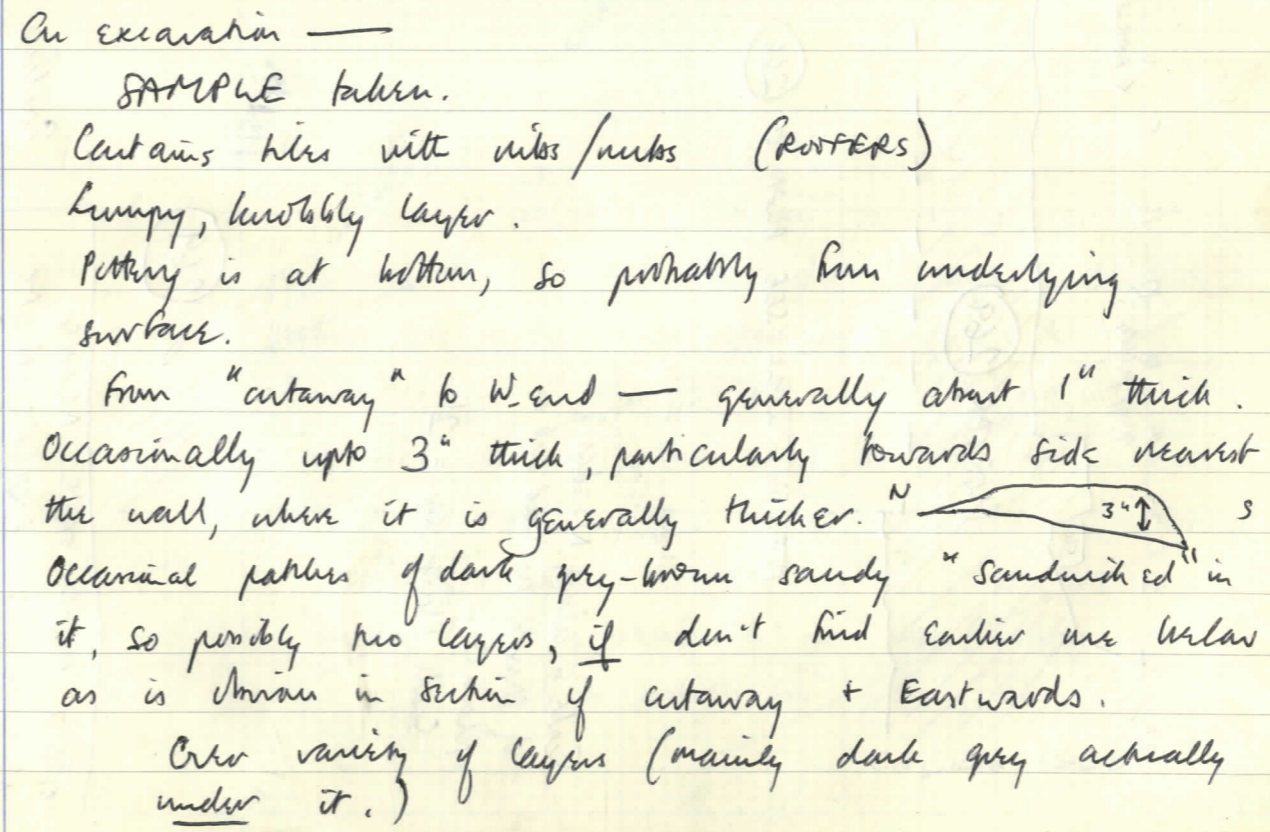 On excavation —
SAMPLE taken.
Contains tiles with nibs/nubs (ROOFERS)
Lumpy, knobbly layer.
Pottery is at bottom, so probably from underlying
surface.
From "cutaway" to W. end — generally about 1" thick.
Occasionally upto 3" thick, particularly towards side nearest
the wall, where it is generally thicker. N 3" S
Occasional patches of dark grey-brown sandy "sandwiched" in
it, so possibly two layers, if don't find earlier one below
as is obvious in section of cutaway + Eastwards.
Over variety of layers (mainly dark grey actually
under it.)